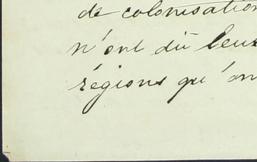 de colonisation
n'ont dû leur
régions qu'on